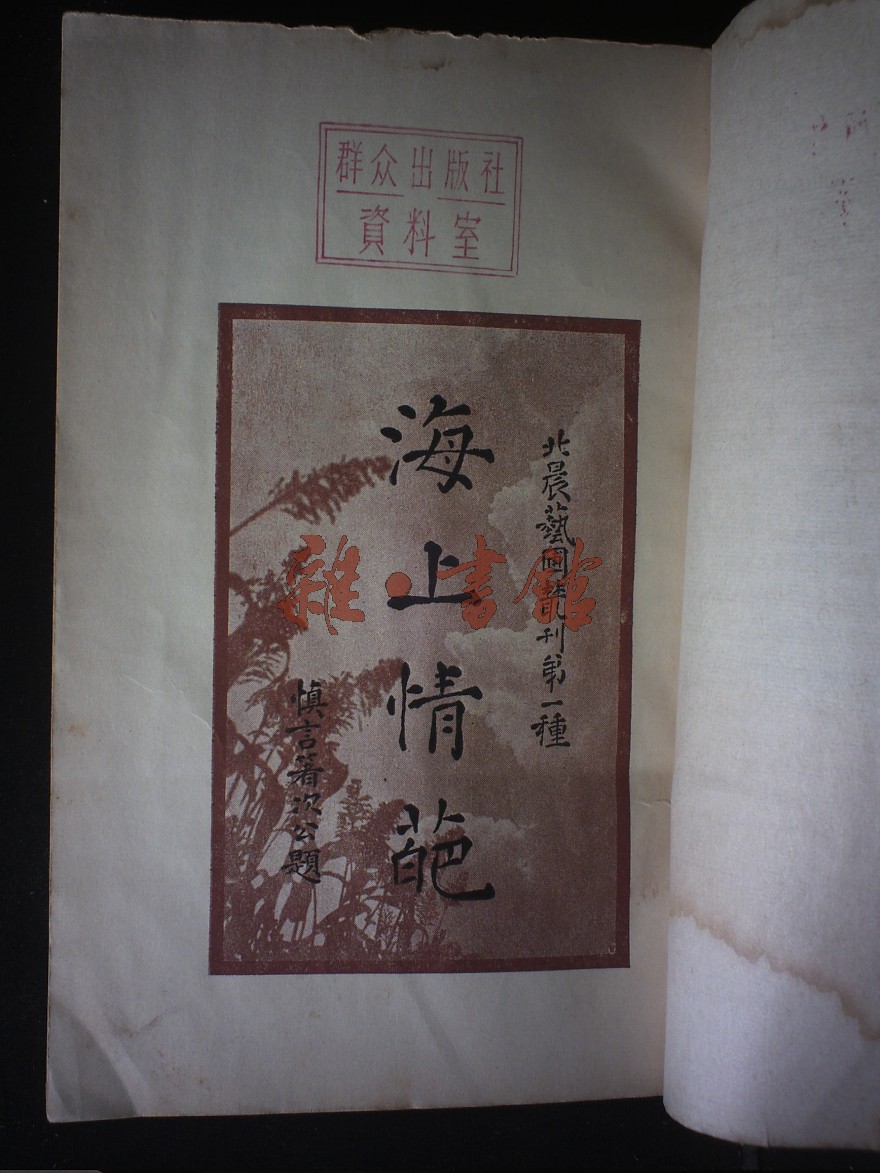 群众出版社
資料室
北晨藝圃叢刊第一種
海上情葩
慎言箸次公題
雜·書館